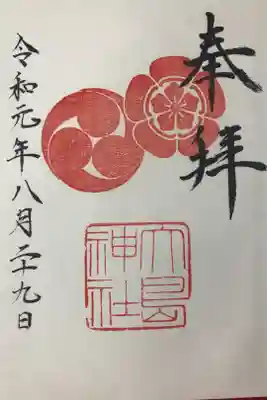 奉拝
大島
神社
令和元年八月二十九日